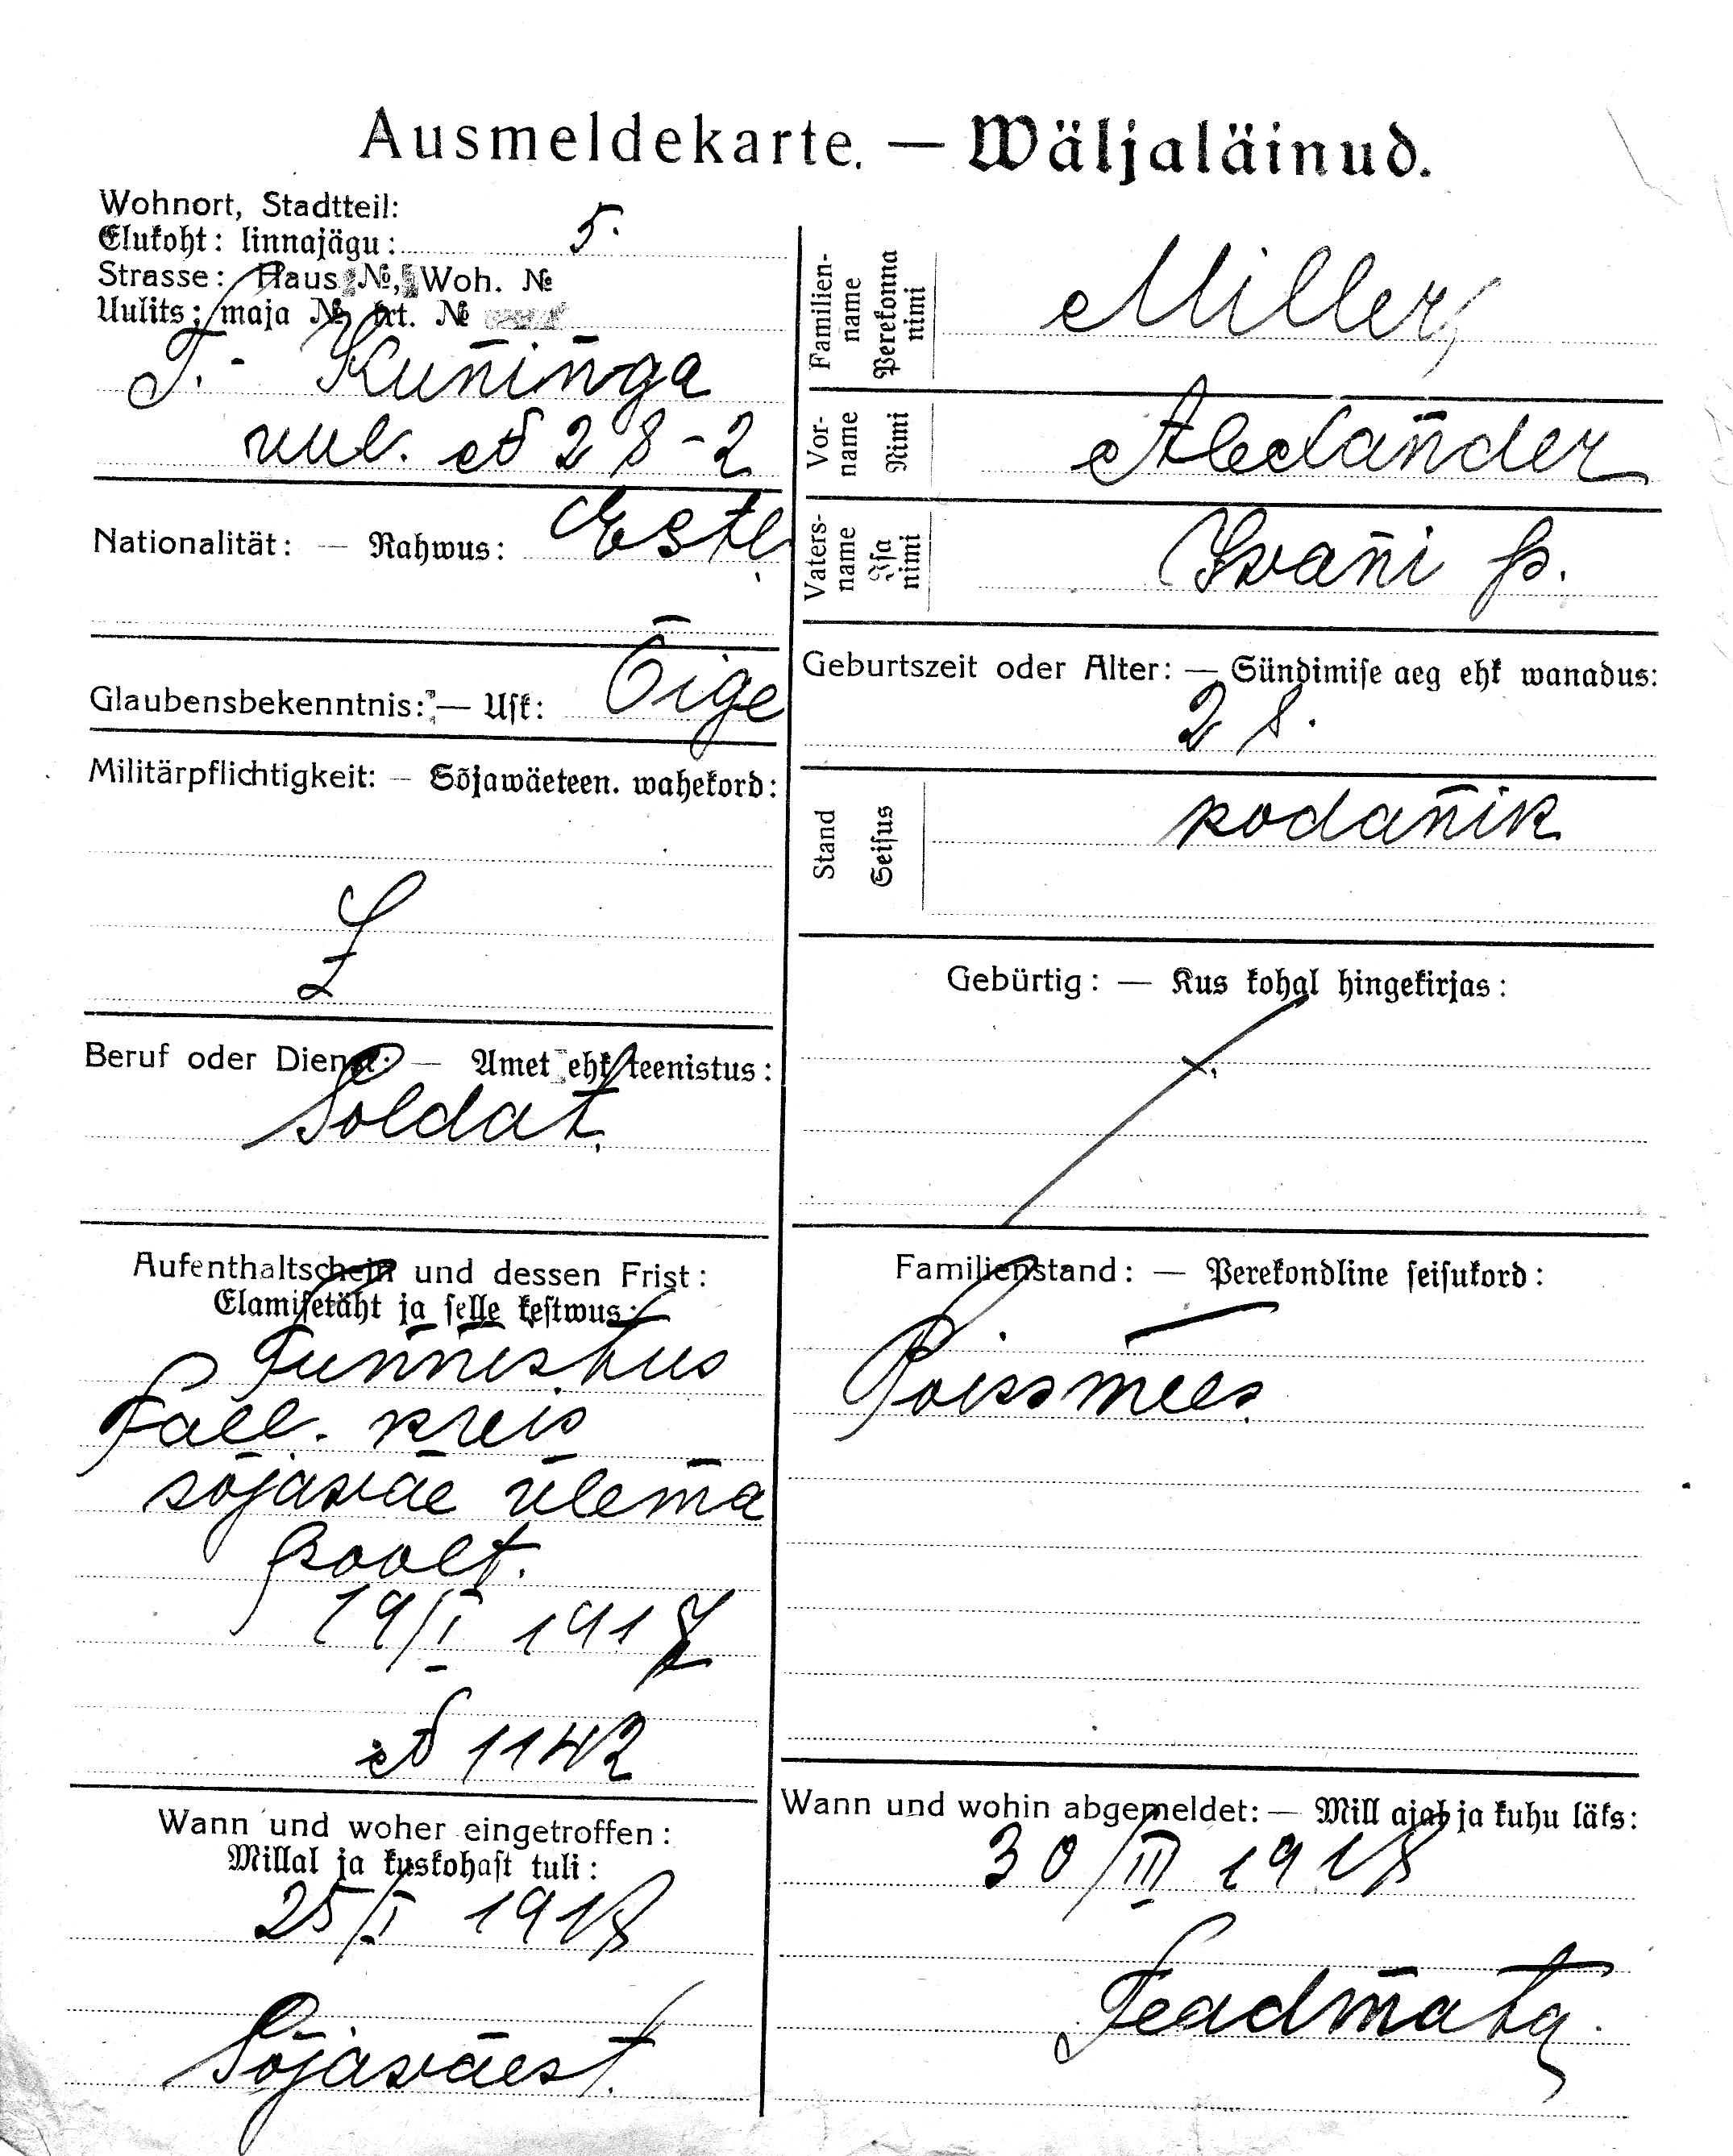 Ausmeldekarte. — Wäljaläinud.
Wohnort, Stadtteil:
Elukoht: linnajägu: 5.
Strasse: Haus №, Woh. №
Uulits: maja № krt. №
T. - Kuninga
uul. № 28-2
Nationalität: — Rahwus: Estl.
Glaubensbekenntnis: — Usk: Õige
Militärpflichtigkeit: — Sõjawäeteen. wahekord:
Beruf oder Dienst: — Amet ehk teenistus:
Soldat.
Aufenthaltschein und dessen Frist:
Elamisetäht ja selle kestwus:
Tunnistus
Tall. kreis
sõjaväe ülema
poolt.
19/I 1918
№ 1142
Wann und woher eingetroffen:
Millal ja kuskohast tuli:
25/I 1918
Sõjaväest.
Familien-
name
Perekonna
nimi
Miller
Vor-
name
Nimi
Alexander
Vaters-
name
Isa
nimi
Ivani p.
Geburtszeit oder Alter: — Sündimise aeg ehk wanadus:
28.
Stand
Seisus
kodanik
Gebürtig: — Kus kohal hingekirjas:
Familienstand: — Perekondline seisukord:
Poissmees
Wann und wohin abgemeldet: — Mill ajal ja kuhu läks:
30/III 1918
Teadmata.